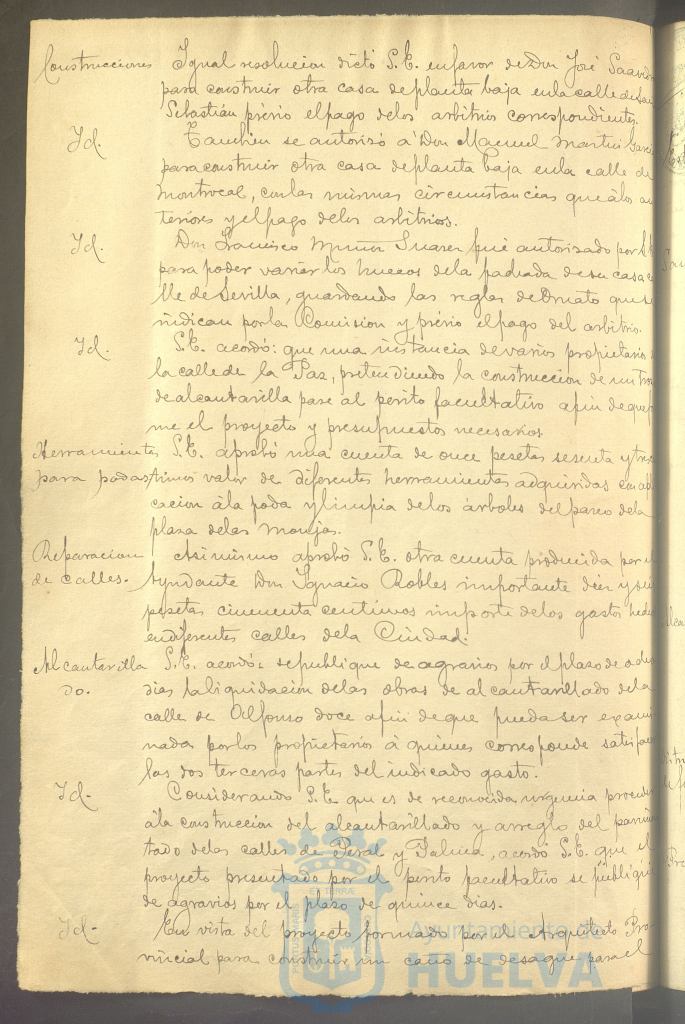 Construcciones Igual resolucion dictó S.E. en favor de Don José Saavedr
para construir otra casa de planta baja en la calle de San
Sebastián prévio el pago de los arbitrios correspondientes.
Id. Tambien se autorizó á Don Manuel Martin Garci
para construir otra casa de planta baja en la calle de
Montrocal, con las mismas circunstancias que á los an
teriores y el pago de los arbitrios.
Id. Don Francisco Muñoz Suarez fué autorizado por S.E.
para poder variar los huecos de la fachada de su casa c
lle de Sevilla, guardando las reglas de Ornato que se
indican por la Comision y prévio el pago del arbitrio.
Id. S.E. acordó: que una instancia de varios propietarios
la calle de la Paz, pretendiendo la construccion de un tro
de alcantarilla pase al perito facultativo afin de que for
me el proyecto y presupuestos necesarios.
Herramientas S.E. aprobó una cuenta de once pesetas sesenta y tres
para podas timos valor de diferentes herramientas adquiridas con apli
cacion á la poda y limpia de los árboles del paseo de la
plaza de las monjas.
Reparacion Asi mismo aprobó S.E. otra cuenta producida por el
de calles. Ayudante Don Ignacio Robles importante diez y seis
pesetas cincuenta centimos importe de los gastos hechos
en diferentes calles de la Ciudad.
Alcantarilla S.E. acordó: se publique de agravios por el plazo de ocho
do. dias la liquidacion de las obras de alcantarillado de la
calle de Alfonso doce afin de que pueda ser exami
nada por los propietarios á quienes corresponde satisfacer
las dos terceras partes del indicado gasto.
Id. Considerando S.E. que es de reconocida urgencia proceder
á la construccion del alcantarillado y arreglo del pavimen
tado de las calles de Peral y Palma, acordó S.E. que el
proyecto presentado por el perito facultativo se publique
de agravios por el plazo de quince dias.
Id. En vista del proyecto formado por el Arquitecto Pro
vincial para construir un caño de desague para el
Ayuntamiento de
HUELVA